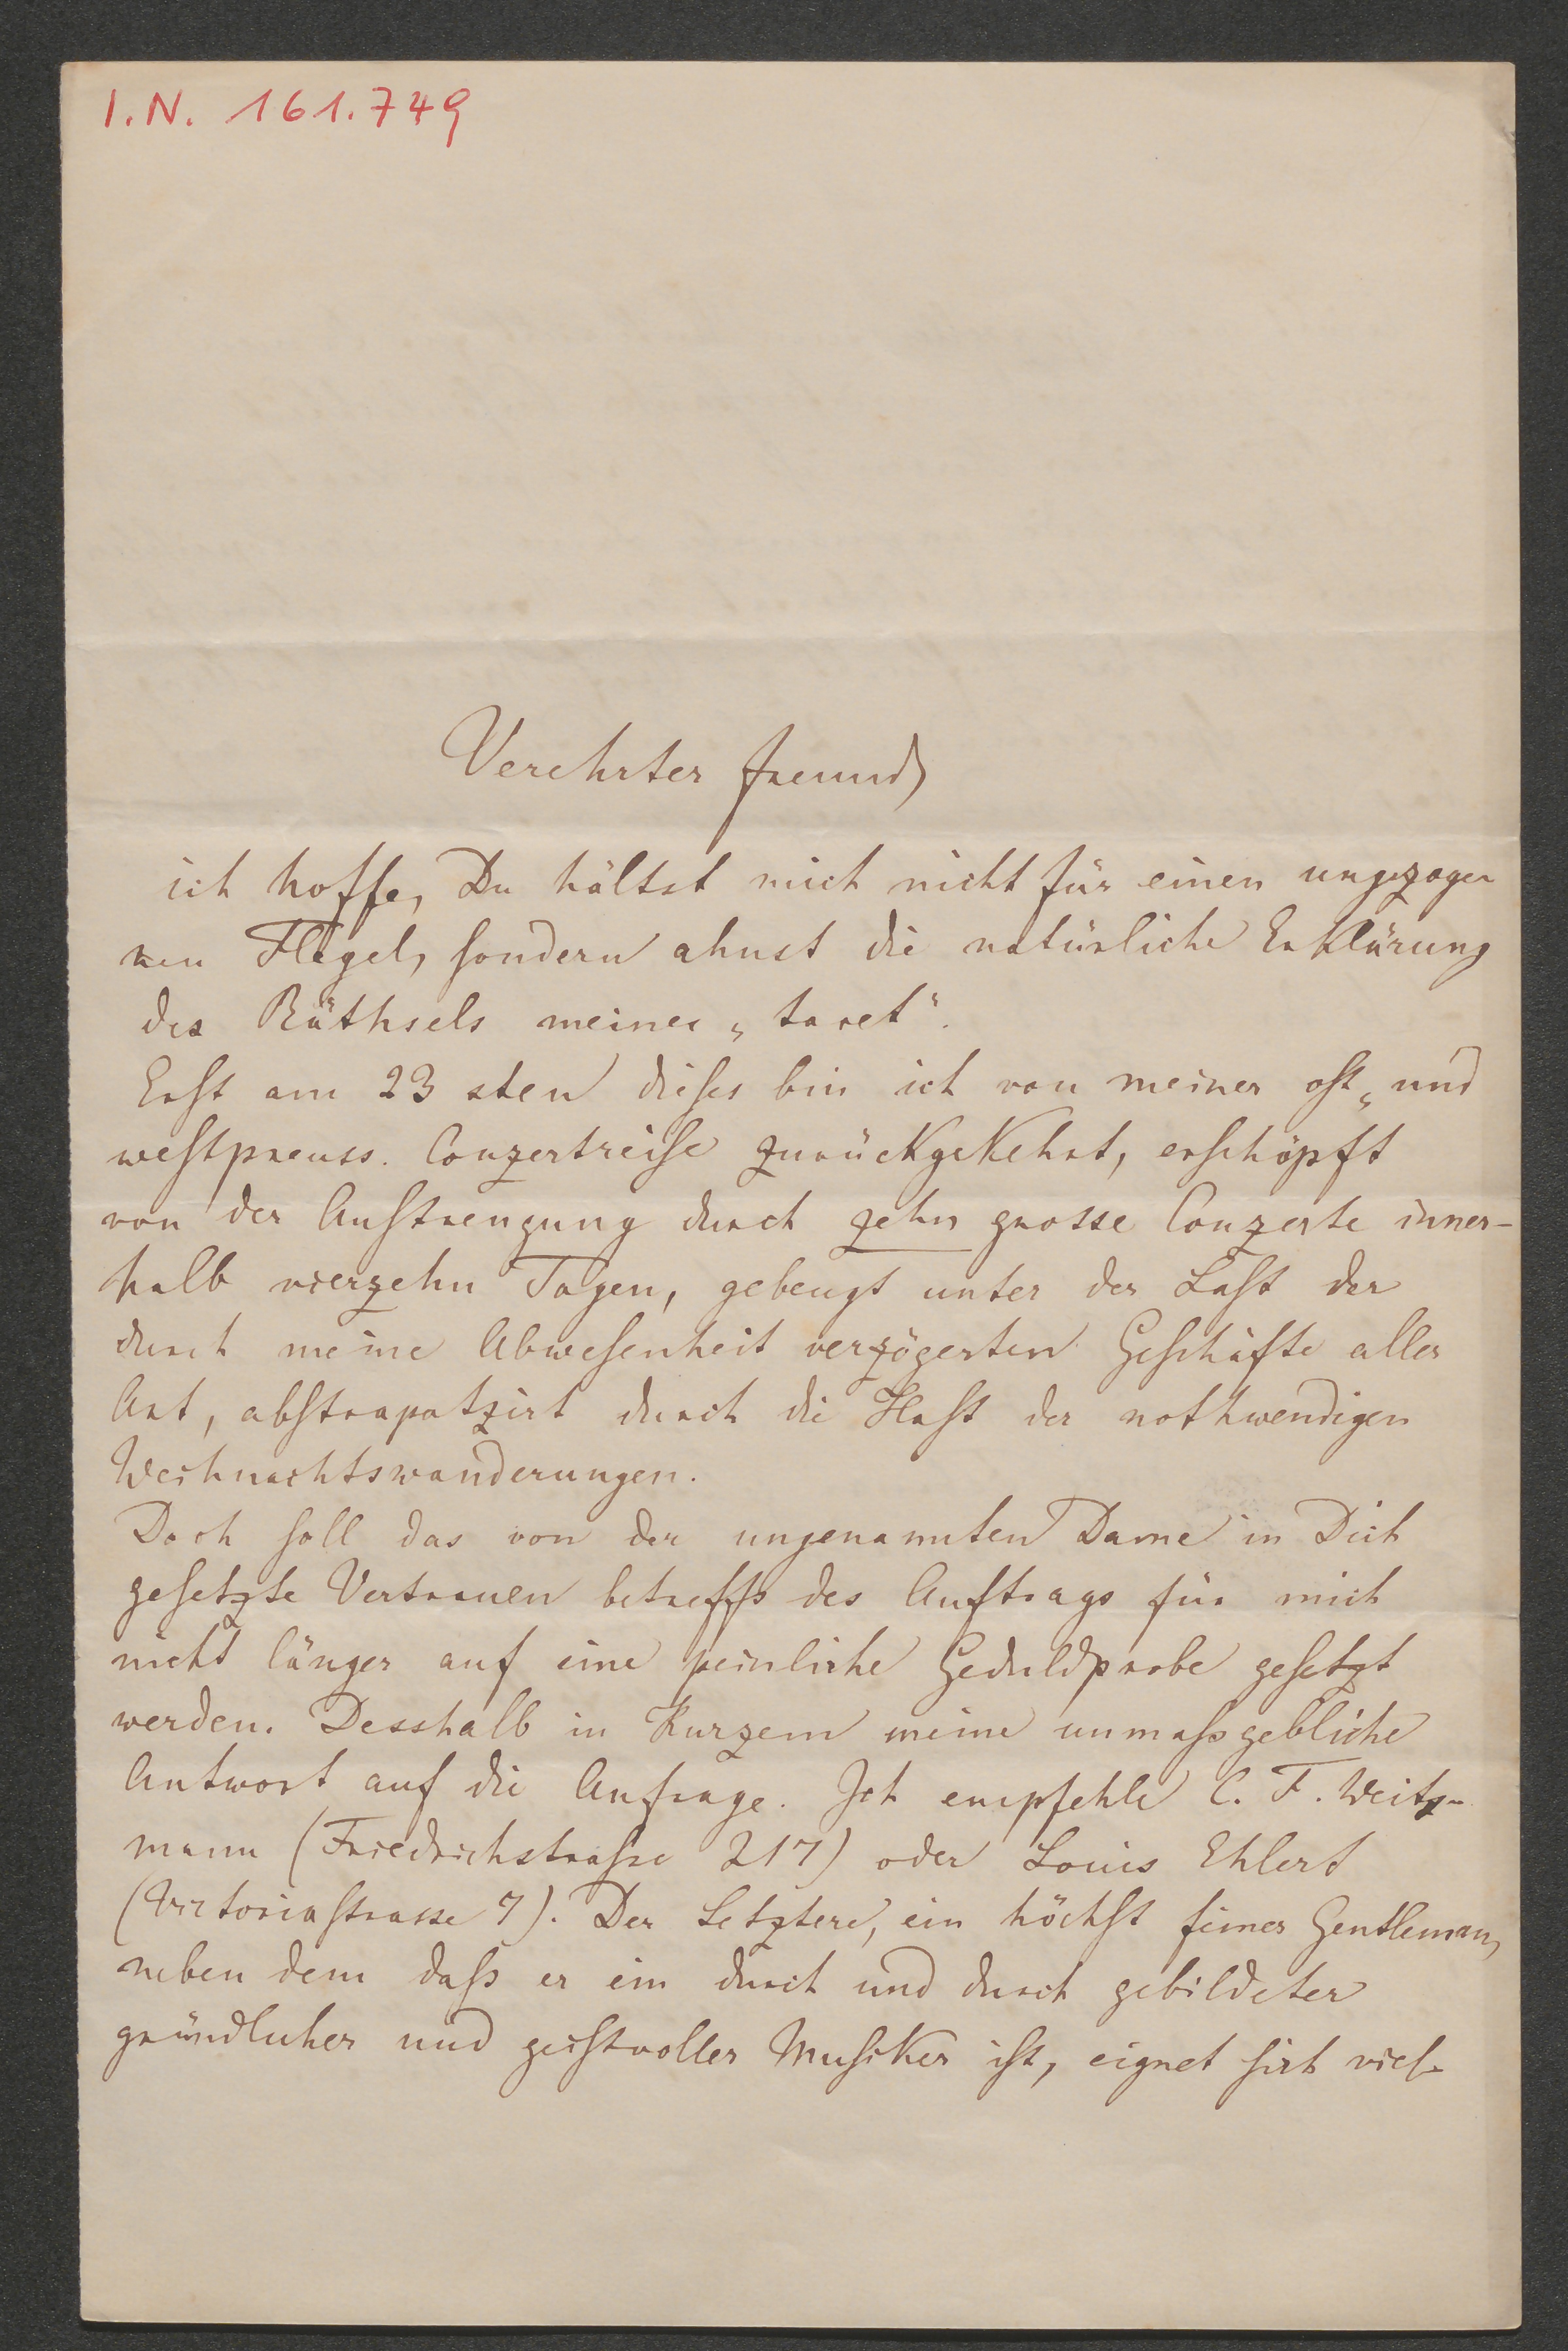 I.N. 161.749
Verehrter Freund,
ich hoffe, Du hältst mich nicht für einen ungezoge-
nen Flegel, sondern ahnst die natürliche Erklärung
des Räthsels meines „tacet“.
Erst am 23 sten dieses bin ich von meiner ost- und
westpreuss. Conzertreise zurückgekehrt, erschöpft
von der Anstrengung durch zehn grosse Conzerte inner-
halb vierzehn Tagen, gebeugt unter der Last der
durch meine Abwesenheit verzögerten Geschäfte aller
Art, abstrapatzirt durch die Hast der nothwendigen
Weihnachtswanderungen.
Doch soll das von der ungenannten Dame in Dich
gesetzte Vertrauen betreffs des Auftrags für mich
nicht länger auf eine peinliche Geduldprobe gesetzt
werden. Desshalb in Kurzem meine unmaßgebliche
Antwort auf die Anfrage. Ich empfehle C. F. Weitz-
mann (Friedrichstraße 217) oder Louis Ehlert
(Victoriastrasse 7). Der Letztere, ein höchst feiner Gentleman,
neben dem daß er ein durch und durch gebildeter
gründlicher und geistvoller Musiker ist, eignet sich viel-